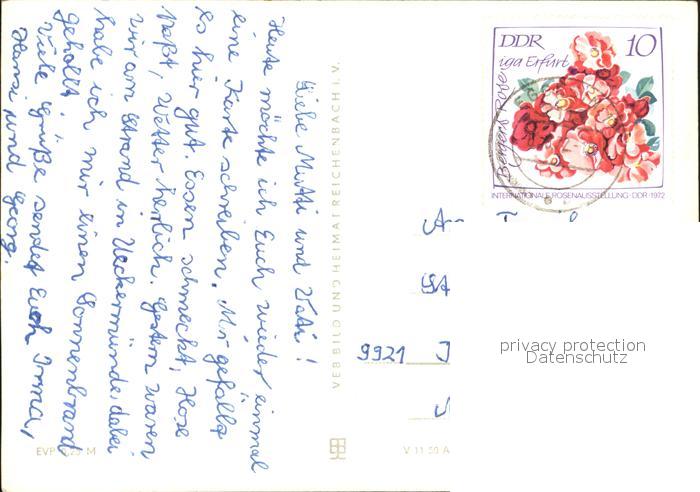 Liebe Mutti und Vati!
Heute möchte ich Euch wieder einmal
eine Karte schreiben. Mir gefällt
es hier gut. Essen schmeckt, Hose
paßt, Wetter herrlich. Gestern waren
wir am Strand in Ueckermünde, dabei
habe ich mir einen Sonnenbrand
geholt! 
Viele Grüße sendet Euch Irma,
Hansi und Georg.
VEB BILD UND HEIMAT REICHENBACH I. V.
DDR 10
iga Erfurt
INTERNATIONALE ROSENAUSSTELLUNG · DDR · 1972
9921
privacy protection
Datenschutz
EVP 0,25 M
V 11 50 A